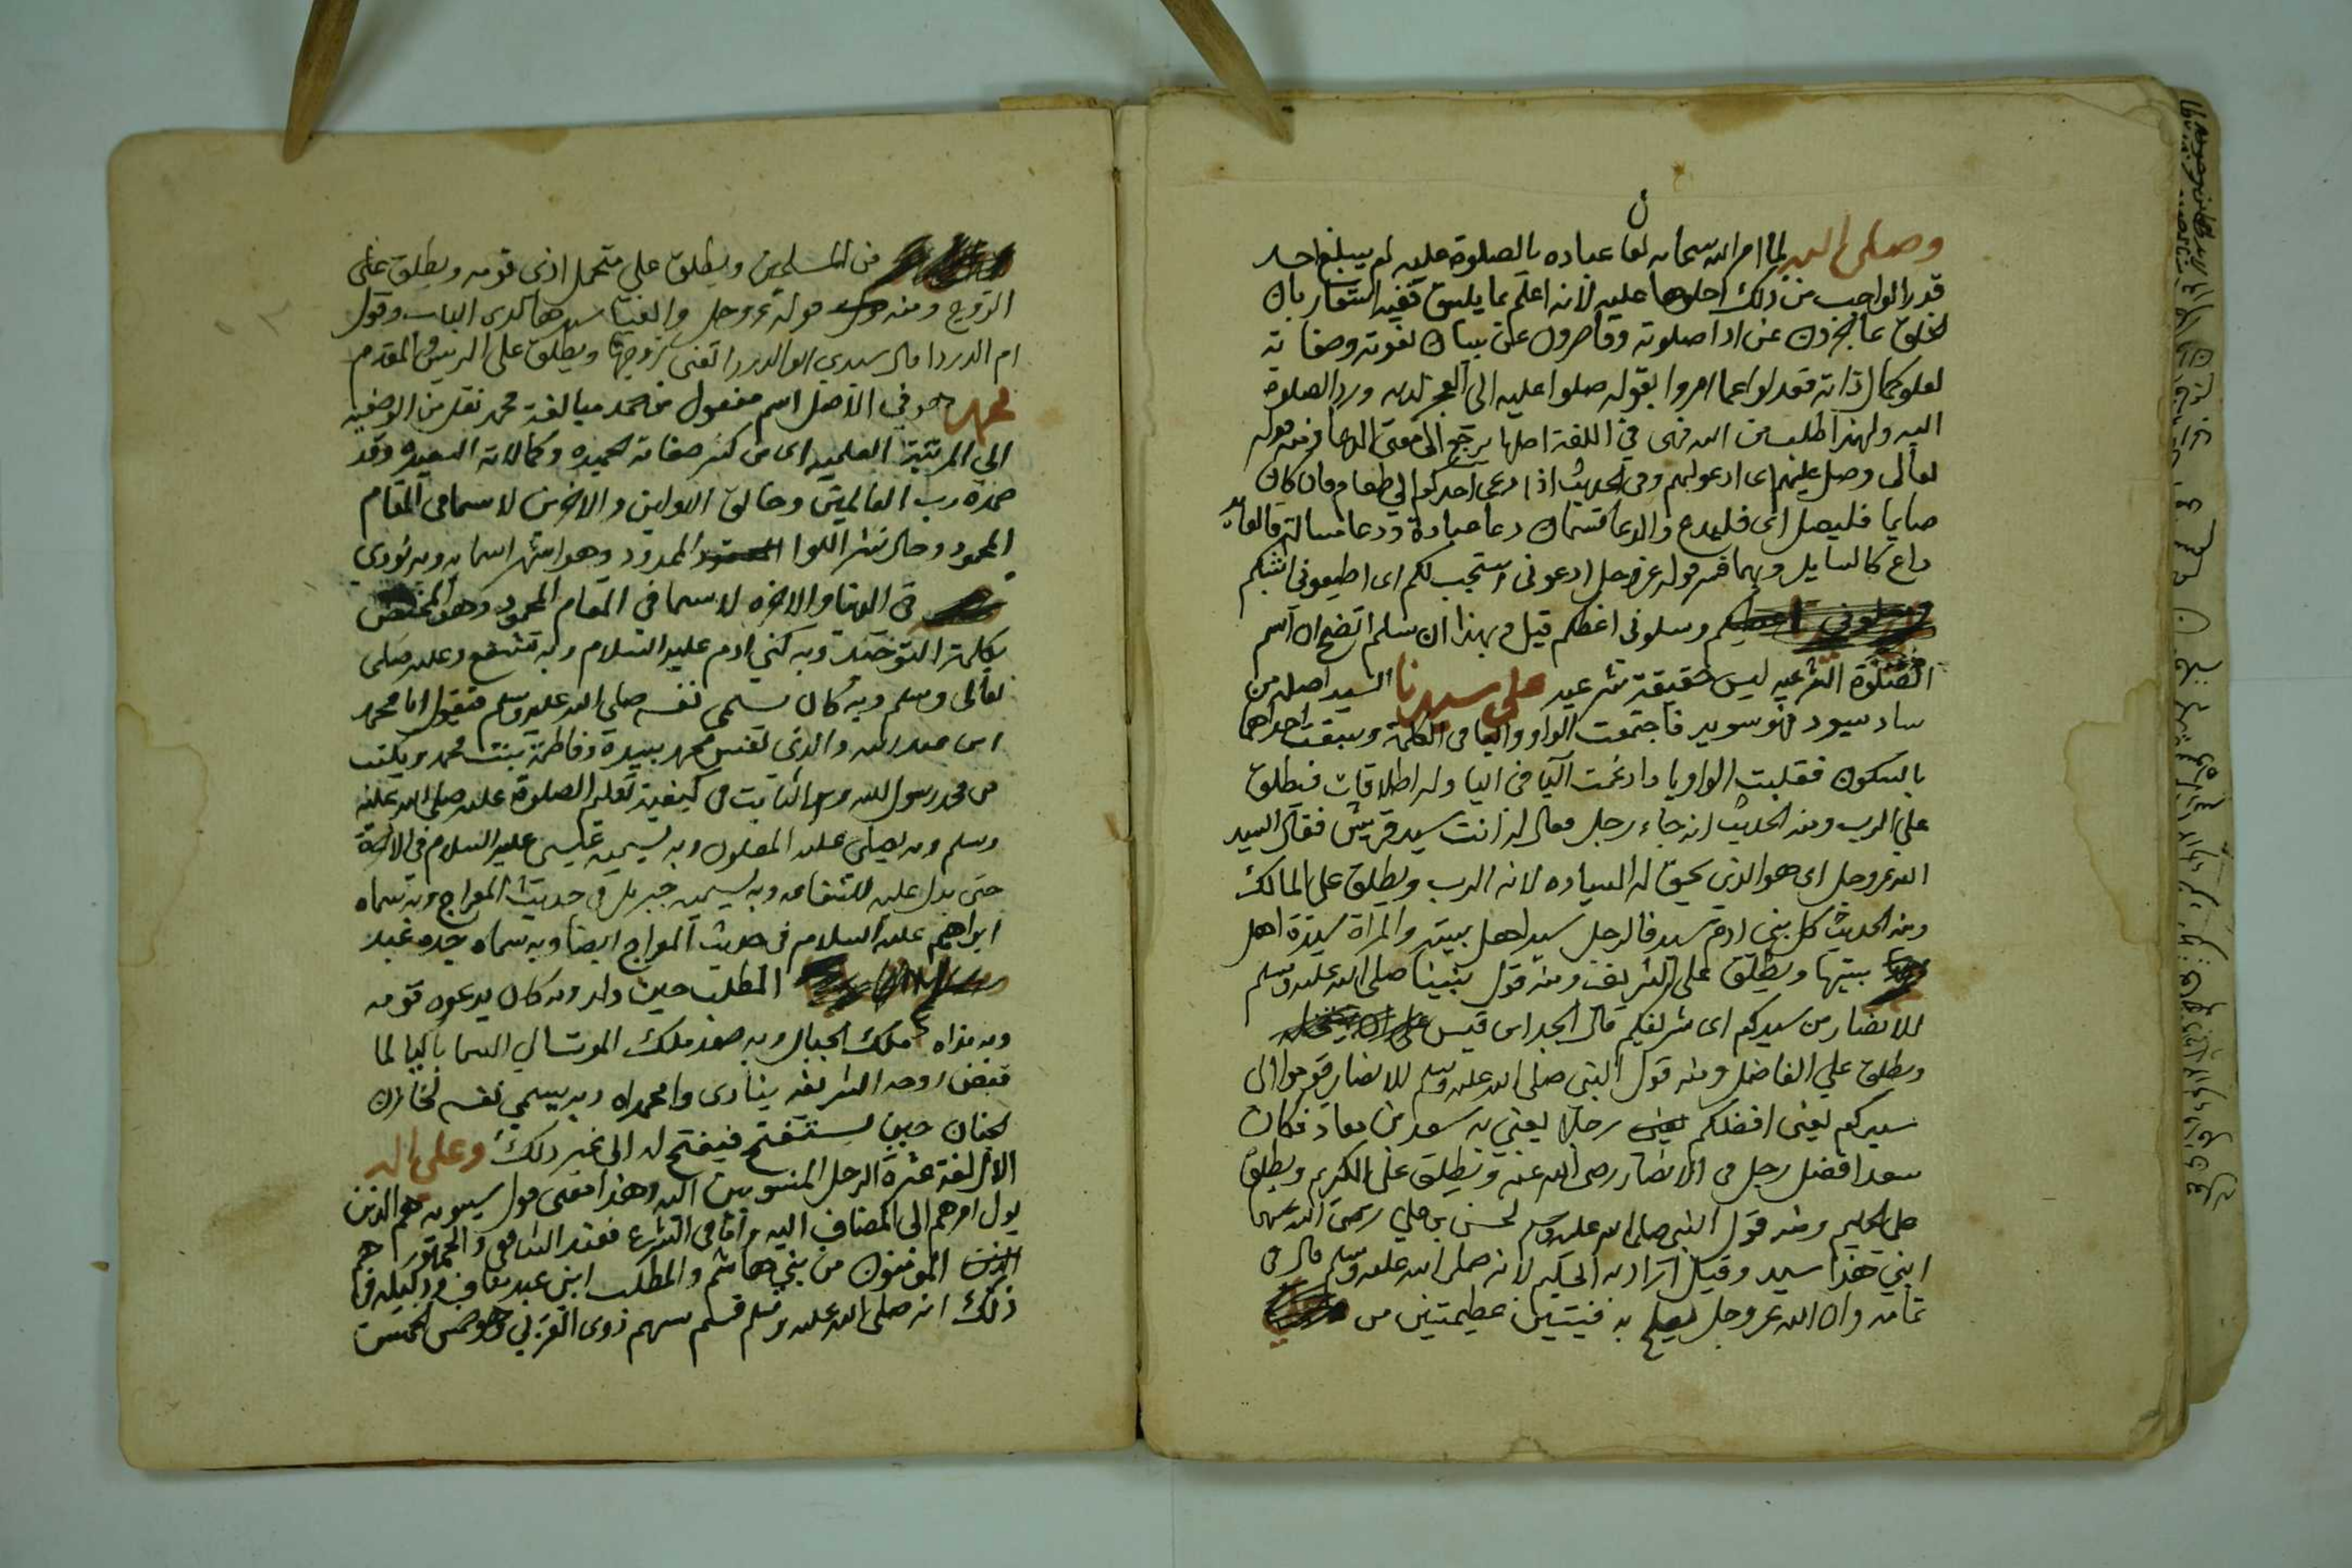 وصلى الله لما امر الله سبحانه تعا عباده بالصلوة عليه لم يبلغ احد
قدر الواجب من ذلك احلوها عليه لانه اعلم بما يليق ففيه اشعار بان
الخلق عاجزون عن ادا صلوته وقاصرون عن بيان نعوته وصفاته
لعلو كمال ذاته فعدلوا عما امروا بقوله صلوا عليه الى العجز لديه ورد الصلوة
اليه ولهذا طلب من الله فهى في اللغة اصلها يرجع الى معنى الدعا ومنه قوله
تعالى وصل عليهم اى ادعو لهم وفى الحديث اذا دعى احدكم الى طعام فان كان
صايما فليصل اى فليدع والدعا قسمان دعا عبادة ودعا مسالة فالعابد
داع كالسايل وبهما فسر قوله عز وجل ادعونى استجب لكم اى اطيعونى اثبكم
وسلونى اعطكم قيل وبهذا ان سلم اتضح ان اسم
الصلوة الشرعيه ليس حقيقة شرعيه على سيدنا السيد اصله من
ساد يسود فهو سويد فاجتمعت الواو واليا فى الكلمة وسبقت احداهما
بالسكون فقلبت الواو يا وادغمت اليا فى اليا وله اطلاقات فيطلق
على الرب ومنه الحديث انه جاء رجل فقال له انت سيد قريش فقال السيد
الله عز وجل اى هو الذى يحق له السياده لانه الرب ويطلق على المالك
ومنه الحديث كل بنى ادم سيد فالرجل سيد اهل بيته والمراة سيدة اهل
بيتها ويطلق على الشريف ومنه قول نبينا صلى الله عليه وسلم
للانصار من سيدكم اى شريفكم قال الجد ابن قيس على انا نبخله
ويطلق على الفاضل ومنه قول النبى صلى الله عليه وسلم للانصار قوموا الى
سيدكم يعنى افضلكم رجلا يعنى به سعد بن معاذ فكان
سعد افضل رجل من الانصار رضى الله عنه ويطلق على الكريم ويطلق
على الحليم ومنه قول النبى صلى الله عليه وسلم لحسن بن على رضى الله عنهما
ابنى هذا سيد وقيل اراد به الحكيم لانه صلى الله عليه وسلم قال فى
تمامه وان الله عز وجل يصلح به فئتين عظيمتين من
من المسلمين ويطلق على متحمل اذى قومه ويطلق على
الزوج ومنه قوله عز وجل والفيا سيدها لدى الباب وقول
ام الدردا قال سيدى ابو الدردا تعنى زوجها ويطلق على الرييس والمقدم
محمد هو فى الاصل اسم مفعول من حمد مبالغة محمد نقل من الوصفيه
الى المرتبة العلميه اى من كثر صفاته الحميده وكمالاته السعيده وقد
حمده رب العالمين وخالق الاولين والاخرين لا سيما فى المقام
المحمود وحال نشر اللوا الممدود وهو اشهر اسمايه وبه نودى
فى الدنيا والاخره لا سيما فى المقام المحمود وهو المختص
بكلمة التوحيد وبه كنى ادم عليه السلام وبه تشفع وعليه صلى
تعالى وسلم وبه كان يسمى نفسه صلى الله عليه وسلم فيقول انا محمد
ابن عبد الله والذى نفس محمد بيده وفاطمة بنت محمد ويكتب
من محمد رسول الله وهو الثابت فى كيفية تعليم الصلوة عليه صلى الله عليه
وسلم وبه يصلى عليه المصلون وبه يسميه عيسى عليه السلام فى الاخرة
حتى يدل عليه للشفاعه وبه يسميه جبريل فى حديث المعراج وبه سماه
ابراهيم عليه السلام فى حديث المعراج ايضا وبه سماه جده عبد
المطلب حين ولد وبه كان يدعوه قومه
وبه ناداه ملك الجبال وبه صعد ملك الموت الى السما باكيا لما
قبض روحه الشريفه ينادى وامحمداه وبه يسمى نفسه لخازن
الجنان حين يستفتح فيفتح له الى غير ذلك وعلى اله
الال لغة عشرة الرجل المنسوبين اليه وهذا معنى قول سيبويه هم الذين
يول امرهم الى المضاف اليه واما فى الشرع فعند الشافعى والجمهور هم
المومنون من بنى هاشم والمطلب ابنى عبد مناف ودليله فى
ذلك انه صلى الله عليه وسلم قسم سهم ذوى القربى وهو خمس الخمس